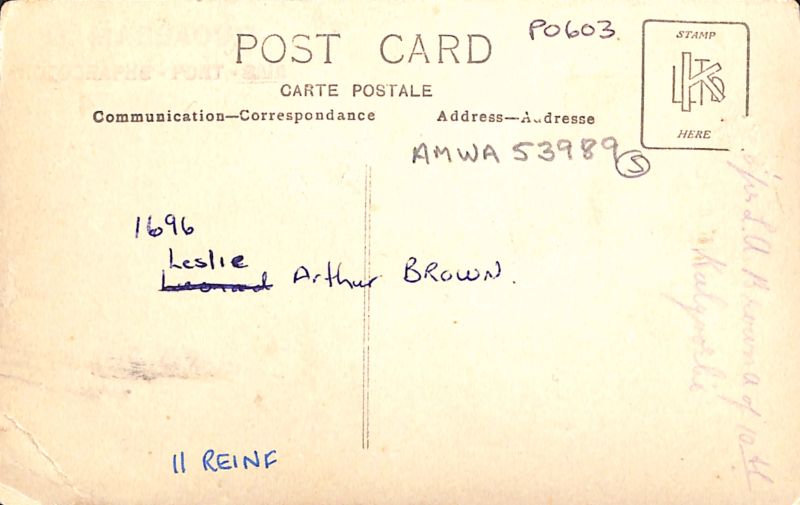 PO603.
POST CARD
CARTE POSTALE
Communication—Correspondance
Address—Adresse
STAMP
HERE
AMWA 53989 S
1696
Leslie
Leonard Arthur BROWN.
11 REINF
L.A Brown
of 10th
Kalgoorlie